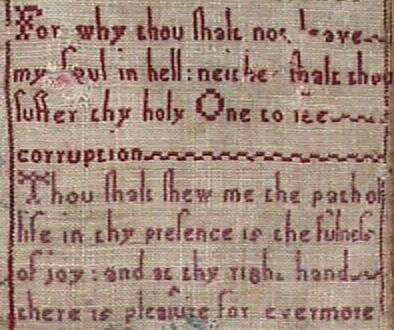 For why thou ſhalt not leave
my ſoul in hell: neither ſhalt thou
ſuffer thy holy One to ſee
corruption
Thou ſhalt ſhew me the path of
life in thy preſence is the fulneſs
of joy: and at thy right hand
there is pleaſure for evermore